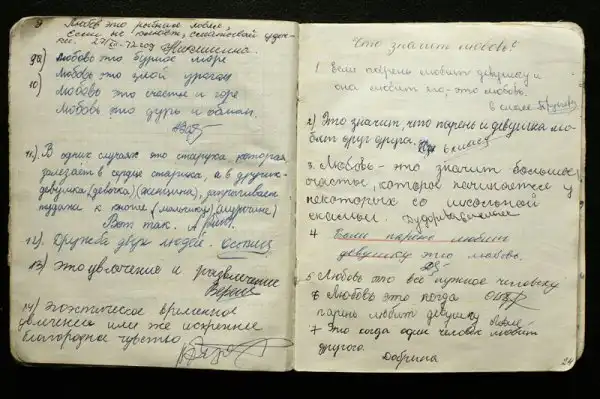 9 Любовь это рыбная ловля,
Если не клюёт, сматывай удоч-
ки.
9а) Любовь это бурное море
10) Любовь это злой ураган
Любовь это счастье и горе
Любовь это дурь и обман.
11) В одних случаях это старуха которая
залезает в сердце старика, а в других-
девушка, (девочка) (женщина), затрагивает
к юноше (мальчику) (мужчине)
Вот так.
12) Дружба двух людей.
13) Это увлечение и развлечение
14) поэтическое временное
увлечение или же искреннее
благородное чувство
Что значит любовь?
1 Если парень любит девушку и
она любит его, - это любовь.
2) Это значит, что парень и девушка лю-
бят друг друга.
3. Любовь - это значит большое
счастье, которое начинается у
некоторых со школьной
скамьи.
4 Если парень любит
девушку это любовь.
5 Любовь это всё нужное человеку
6 Любовь это когда
парень любит девушку
7 Это когда один человек любит
другого.
Добрина
24